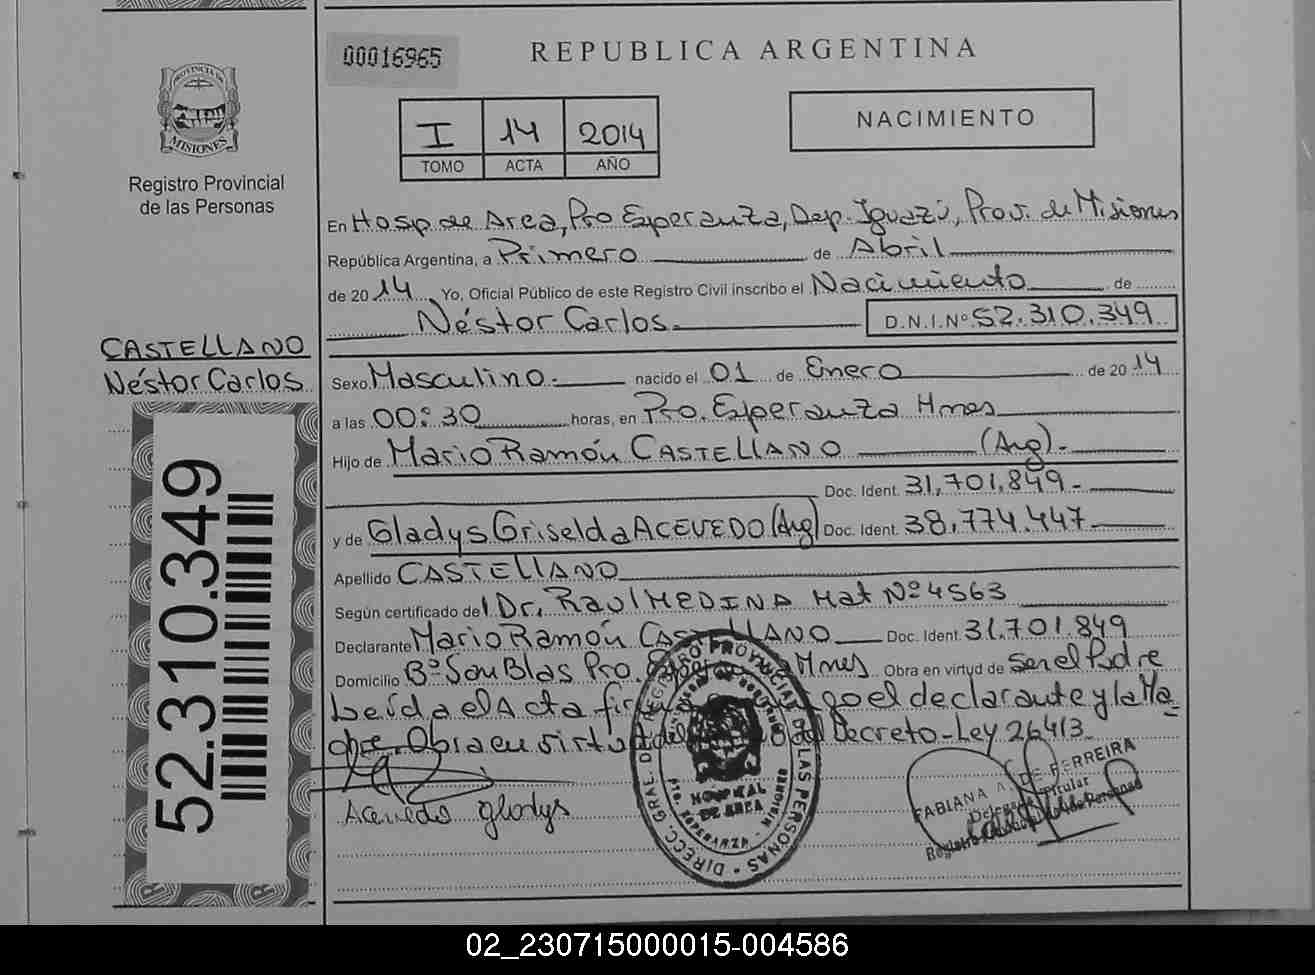 00016965
REPUBLICA ARGENTINA
PROVINCIA DE
MISIONES
Registro Provincial
de las Personas
I 14 2014
TOMO ACTA AÑO
NACIMIENTO
En Hosp. de Area, Pto Esperanza, Dep. Iguazú, Prov. de Misiones
República Argentina, a Primero de Abril
de 2014 Yo, Oficial Público de este Registro Civil inscribo el Nacimiento de
Néstor Carlos. D.N.I. Nº 52.310.349
CASTELLANO
Néstor Carlos
52.310.349
Sexo Masculino. nacido el 01 de Enero de 2014
a las 00:30 horas, en Pto. Esperanza Mnes
Hijo de Mario Ramón CASTELLANO (Arg).
Doc. Ident. 31.701.849-
y de Gladys Griselda ACEVEDO (Arg) Doc. Ident. 38.774.447-
Apellido CASTELLANO
Según certificado del Dr. Raul MEDINA Mat Nº 4563
Declarante Mario Ramón CASTELLANO Doc. Ident. 31.701.849
Domicilio Bº San Blas Pto. Mnes Obra en virtud de Ser el Padre
Leída el Acta el declarante y la Ma
dre. Obra en virtud del Decreto-Ley 26413.
Acevedo Gladys
DIRECC. GRAL. DEL REGISTRO PROVINCIAL DE LAS PERSONAS
HOSPITAL
DE AREA
PTO. ESPERANZA - MISIONES
FABIANA A. DE FERREIRA
Delegada Titular
Registro de las Personas
02_230715000015-004586